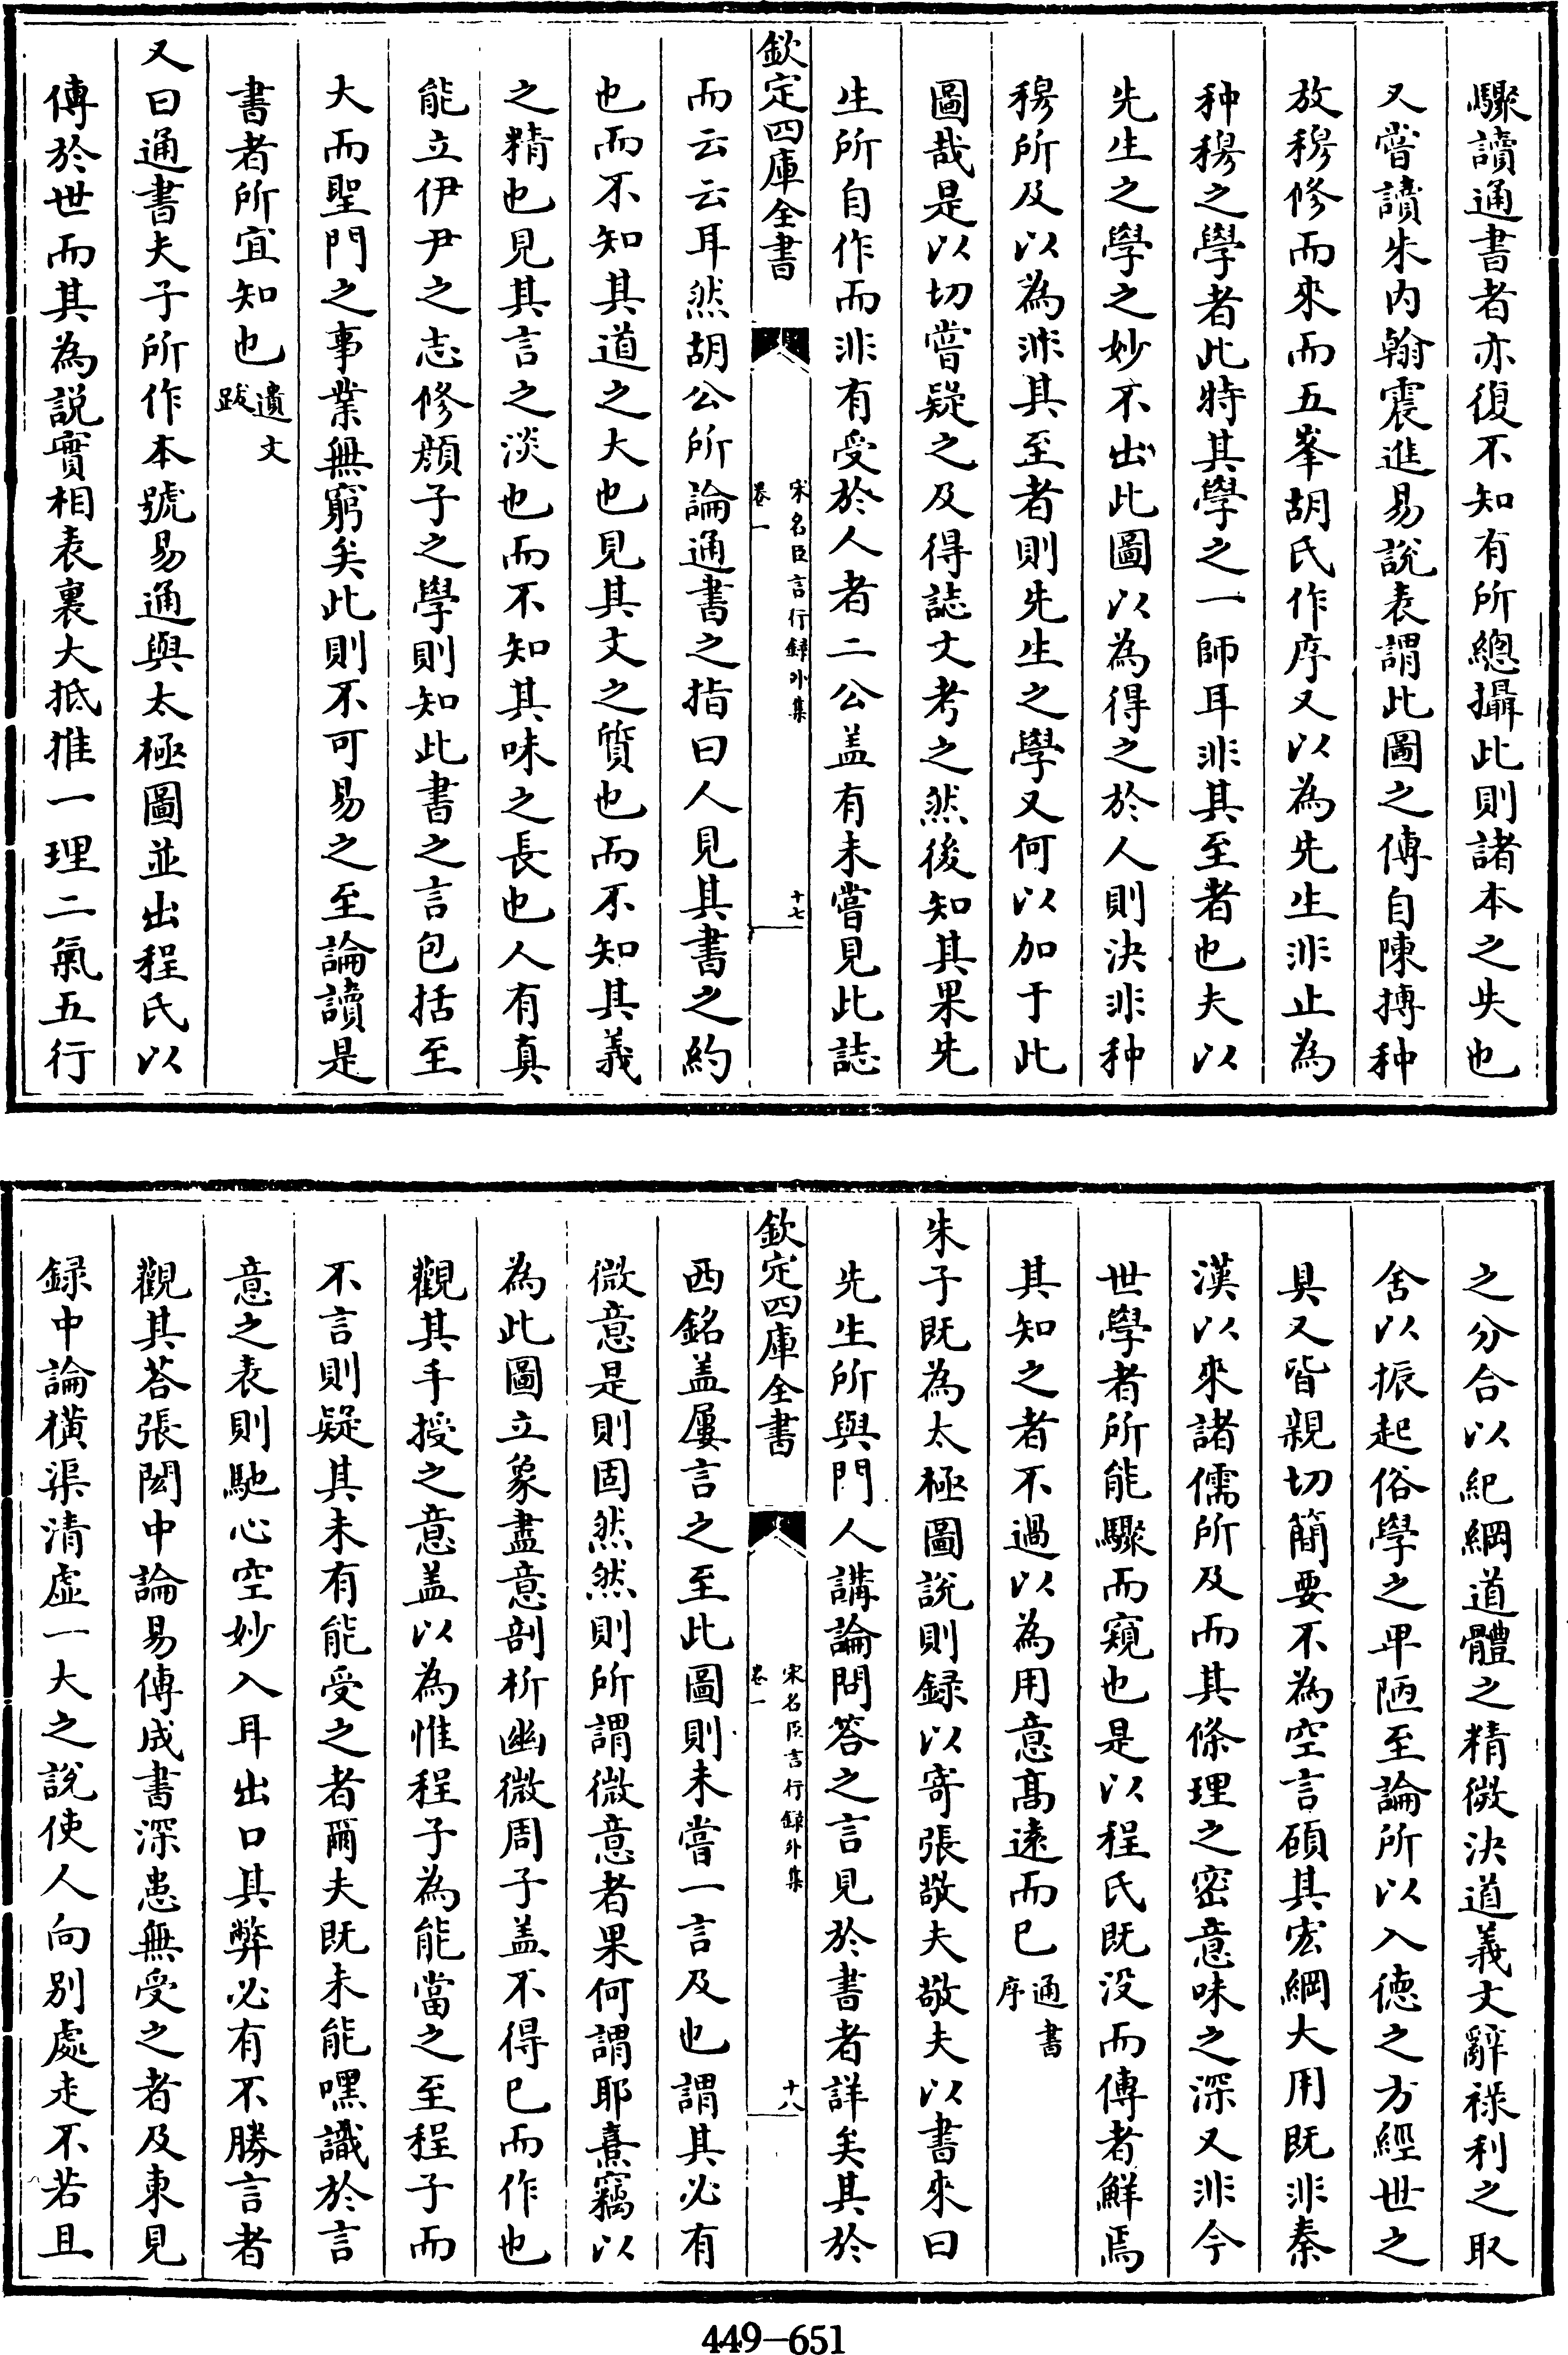 驟讀通書者亦復不知有所總攝此則諸本之失也
又嘗讀朱內翰震進易說表謂此圖之傳自陳摶种
放穆修而來而五峯胡氏作序又以為先生非止為
种穆之學者此特其學之一師耳非其至者也夫以
先生之學之妙不出此圖以為得之於人則決非种
穆所及以為非其至者則先生之學又何以加于此
圖哉是以切嘗疑之及得誌文考之然後知其果先
生所自作而非有受於人者二公盖有未嘗見此誌
欽定四庫全書
宋名臣言行録外集
卷一
十七
而云云耳然胡公所論通書之指曰人見其書之約
也而不知其道之大也見其文之質也而不知其義
之精也見其言之淡也而不知其味之長也人有真
能立伊尹之志修顔子之學則知此書之言包括至
大而聖門之事業無窮矣此則不可易之至論讀是
書者所宜知也遺文跋
又曰通書夫子所作本號易通與太極圖並出程氏以
傳於世而其為説實相表裏大抵推一理二氣五行
之分合以紀綱道體之精微決道義文辭祿利之取
舍以振起俗學之卑陋至論所以入德之方經世之
具又皆親切簡要不為空言碩其宏綱大用既非秦
漢以來諸儒所及而其條理之密意味之深又非今
世學者所能驟而窺也是以程氏既没而傳者鮮焉
其知之者不過以為用意髙逺而已通書序
朱子既為太極圖説則録以寄張敬夫敬夫以書來曰
先生所與門人講論問答之言見於書者詳矣其於
欽定四庫全書
宋名臣言行録外集
卷一
十八
西銘盖屢言之至此圖則未嘗一言及也謂其必有
微意是則固然然則所謂微意者果何謂耶熹竊以
為此圖立象盡意剖析幽微周子盖不得已而作也
觀其手授之意盖以為惟程子為能當之至程子而
不言則疑其未有能受之者爾夫既未能嘿識於言
意之表則馳心空妙入耳出口其弊必有不勝言者
觀其荅張閎中論易傳成書深患無受之者及東見
録中論橫渠清虚一大之説使人向别處走不若且
449-651